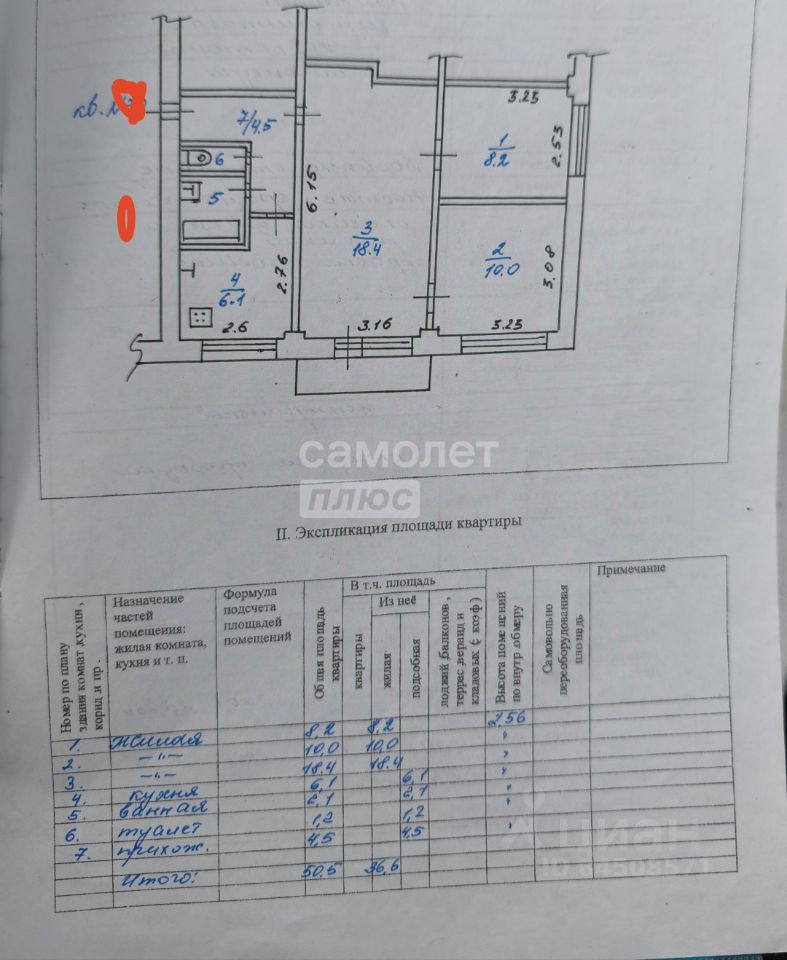 кв. №
7/4.5
3.23
1
8.2
2.53
6
5
6.15
3
18.4
2
10.0
3.08
4
6.1
2.76
2.6
3.16
3.23
самолет
плюс
II. Экспликация площади квартиры
Номер по плану здания комнат ,кухни, корид.и пр.
Назначение частей помещения: жилая комната, кухня и т. п.
Формула подсчета площадей помещений
Общая площадь квартиры
В т.ч. площадь
квартиры
Из неё
жилая
подсобная
лоджий ,балконов , террас ,веранд и кладовых (с коэф)
Высота помещений по внутр .обмеру
Самовольно переоборудованная площадь
Примечание
1. жилая 8,2 8,2 2,56
2. –"– 10,0 10,0 "
3. –"– 18.4 18.4 "
4. кухня 6,1 6,1 "
5. ванная 2,1 2,1 "
6. туалет 1,2 1,2 "
7. прихож. 4,5 4,5 "
Итого: 50.5 36,6
циан